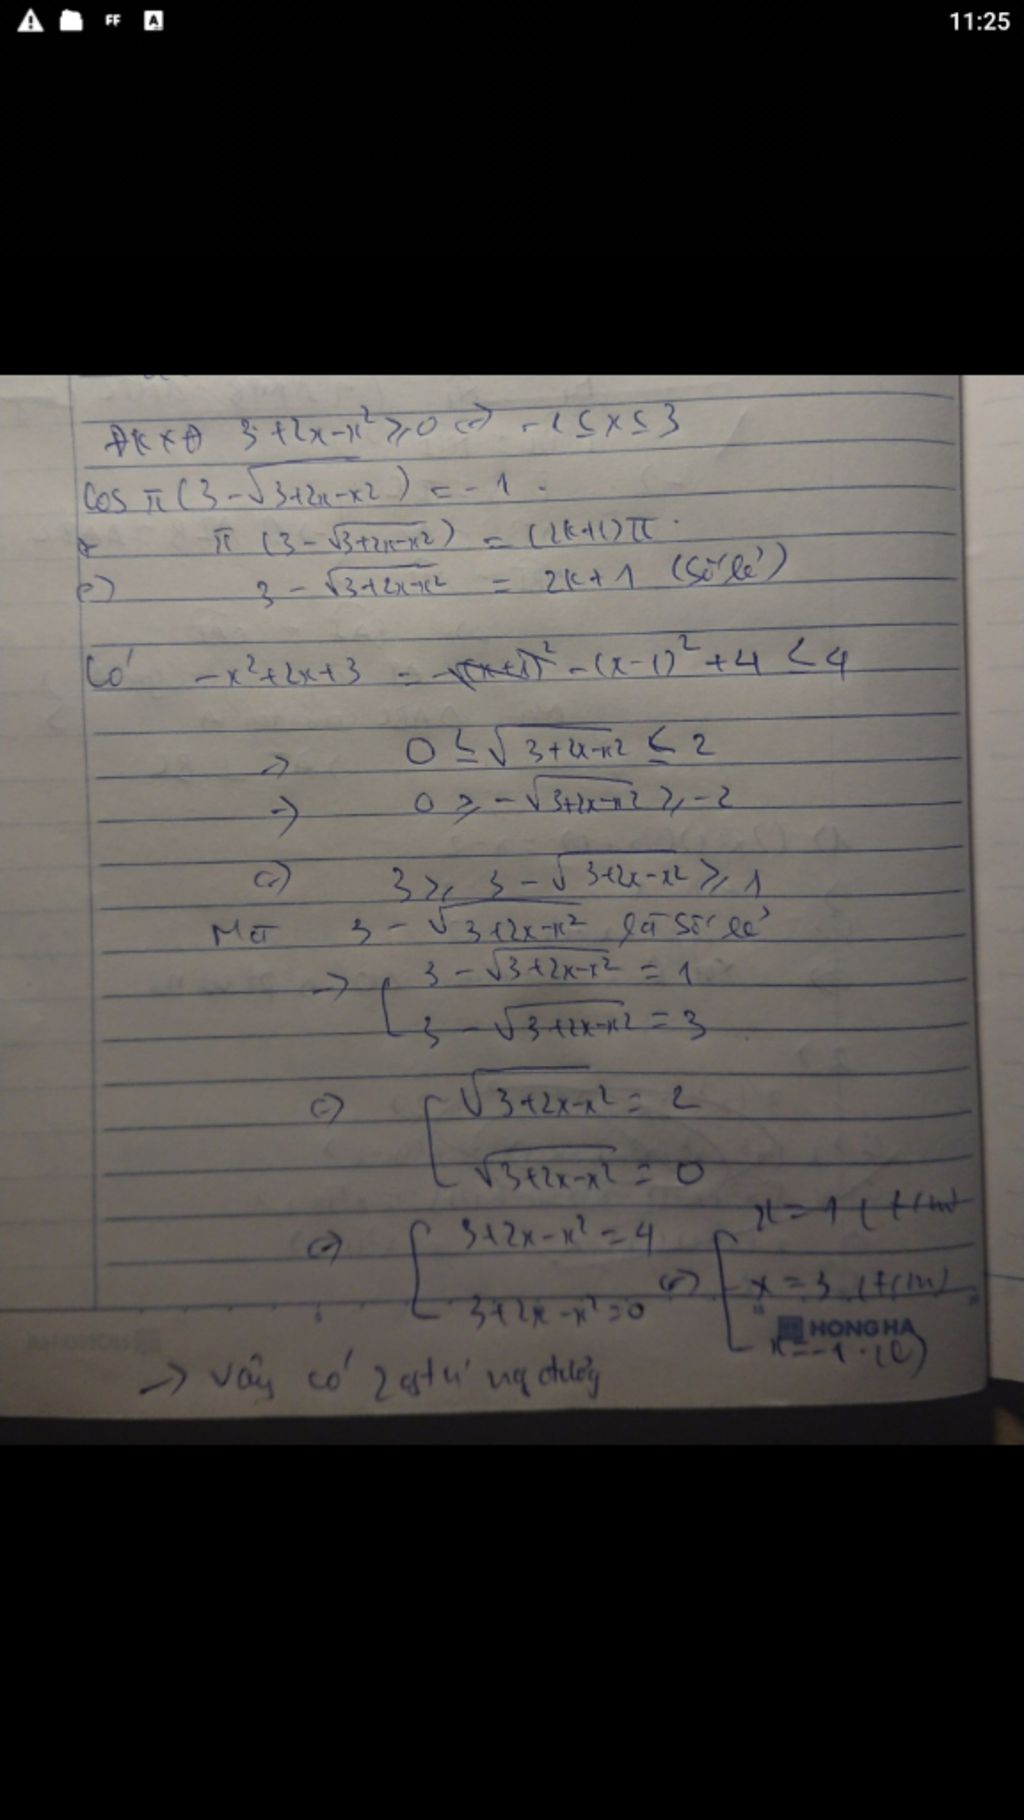 11:25
FF A
ĐKXĐ 3+2x-x² ≥ 0 <=> -1 ≤ x ≤ 3
Cos π(3-√3+2x-x²) = -1.
π (3-√3+2x-x²) = (2k+1)π.
<=> 3-√3+2x-x² = 2k+1 (số lẻ)
Có -x²+2x+3 = -(x-1)²+4 ≤ 4
=> 0 ≤ √3+2x-x² ≤ 2
=> 0 ≥ -√3+2x-x² ≥ -2
<=> 3 ≥ 3-√3+2x-x² ≥ 1
Mà 3-√3+2x-x² là số lẻ
=> [ 3-√3+2x-x² = 1
3-√3+2x-x² = 3
<=> [ √3+2x-x² = 2
√3+2x-x² = 0
x = 1 (t/m)
<=> [ 3+2x-x² = 4
<=> [ x = 3 (t/m)
3+2x-x² = 0
HONG HA
x = -1 (l)
-> Vậy có 2